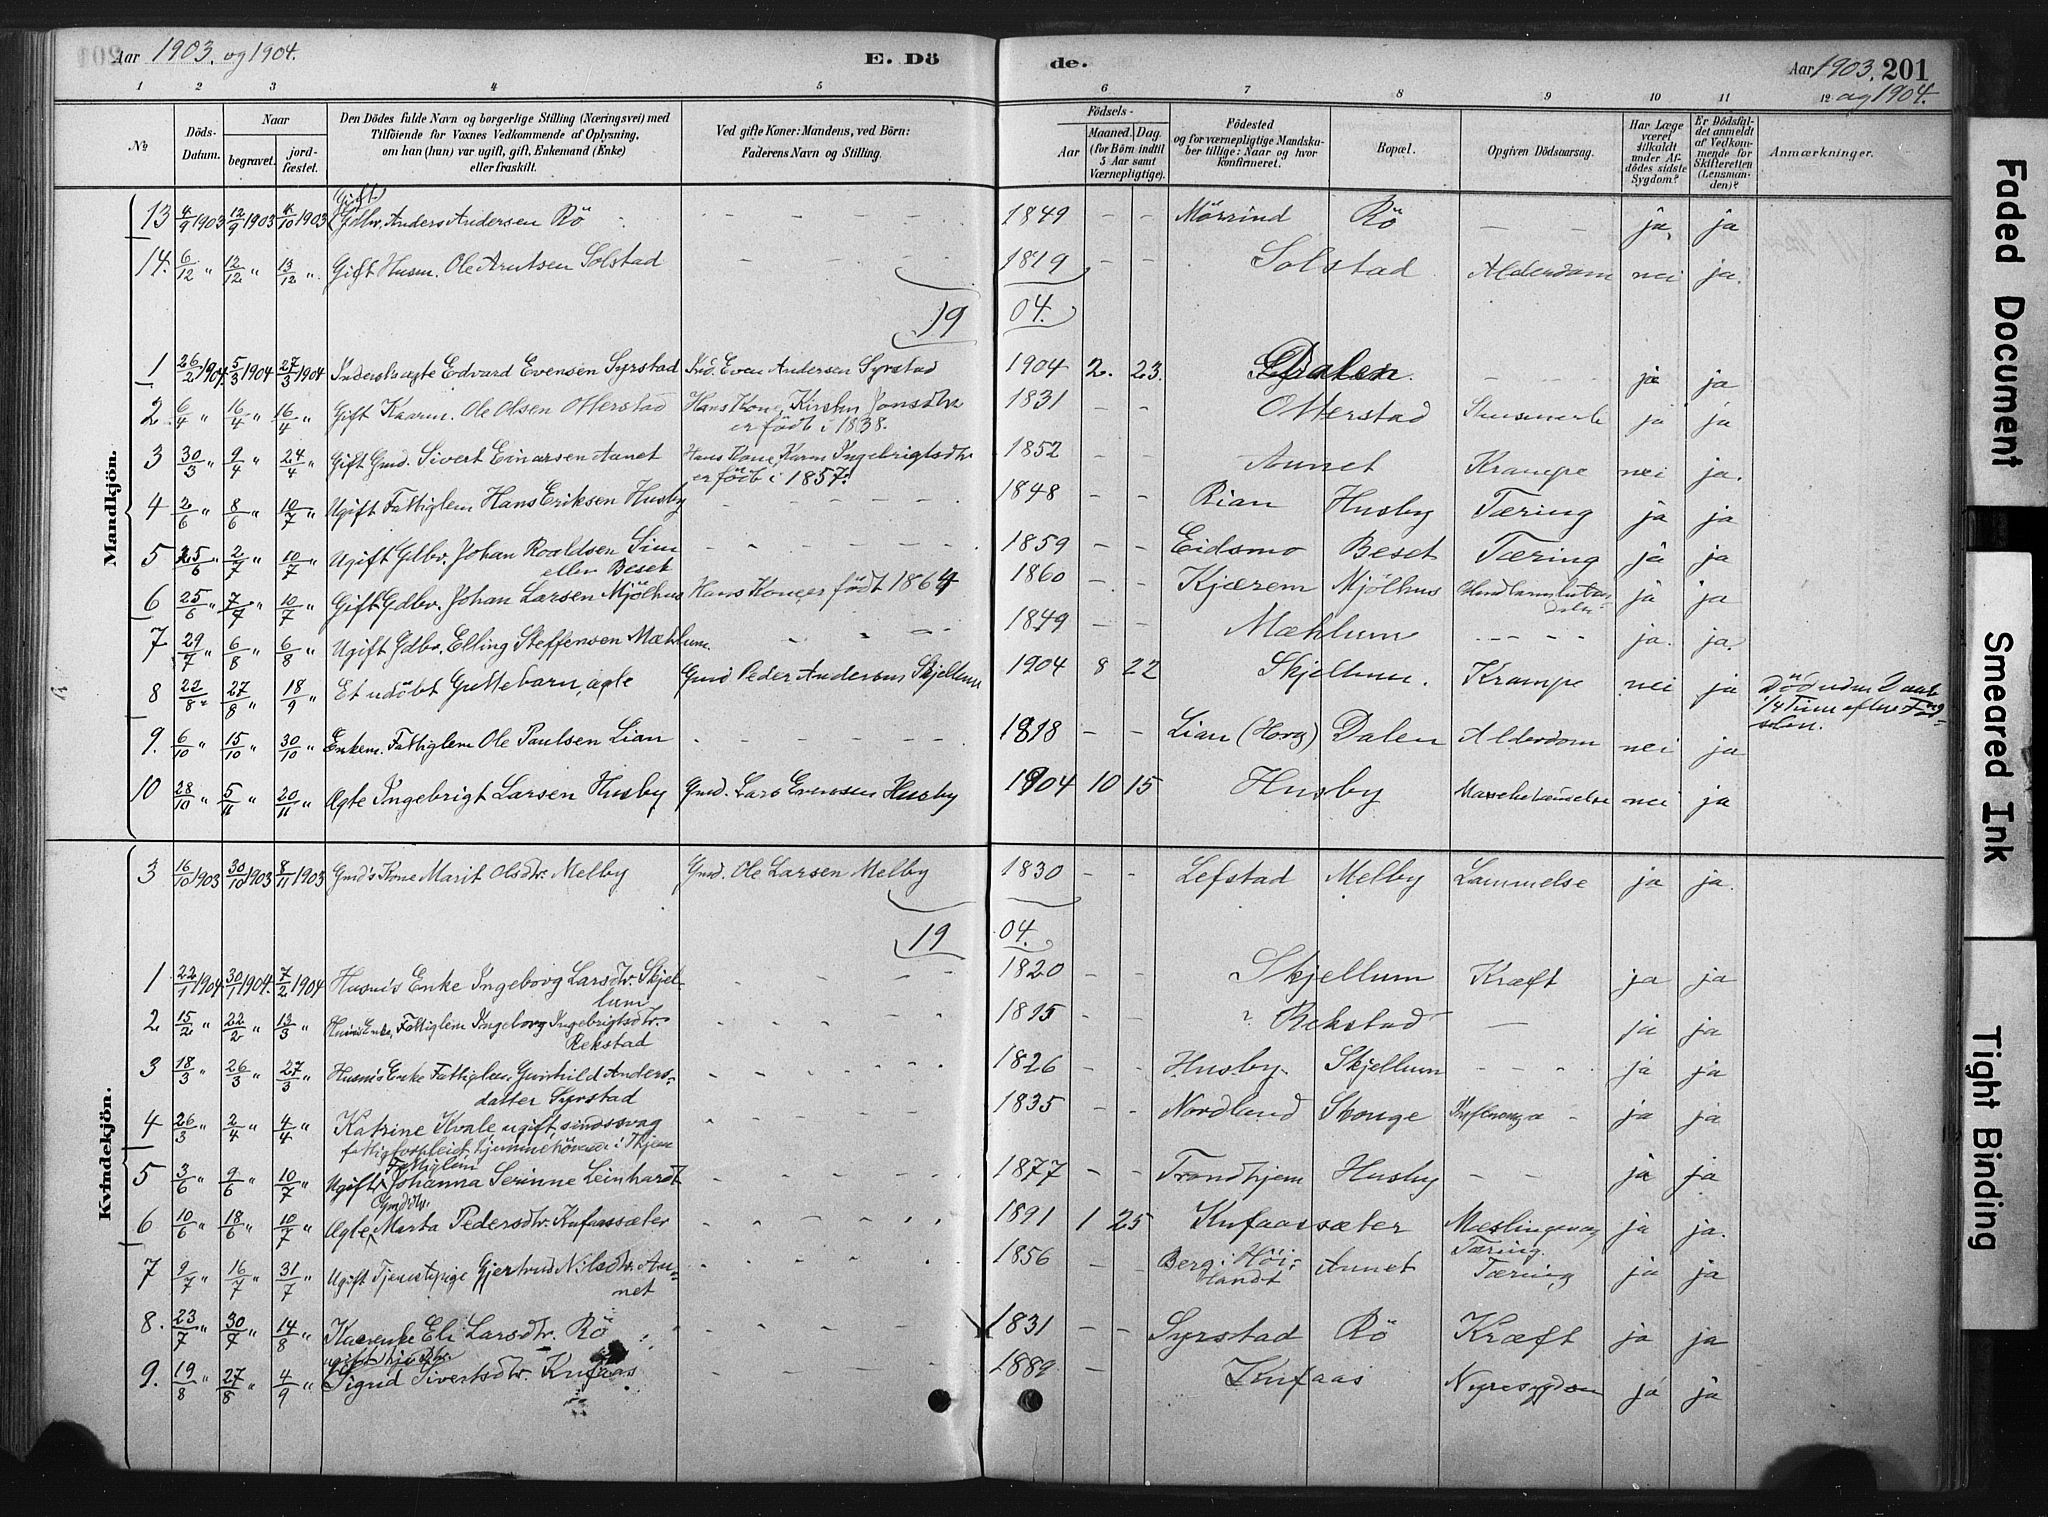 Aar 1903. og 1904.
E. Dö
de.
Aar 1903. 201
og 1904.
1 2 3 4 5 6 7 8 9 10 11 12
№
Döds-
Datum.
Naar
begravet.
jord-
fæstet.
Den Dödes fulde Navn og borgerlige Stilling (Næringsvei) med
Tilföiende for Voxnes Vedkommende af Oplysning,
om han (hun) var ugift, gift, Enkemand (Enke)
eller fraskilt.
Ved gifte Koner: Mandens, ved Börn:
Faderens Navn og Stilling.
Födsels-
Aar
Maaned. Dag.
(for Börn indtil
5 Aar samt
Værnepligtige).
Födested
og for værnepligtige Mandska-
ber tillige: Naar og hvor
konfirmeret.
Bopæl.
Opgiven Dödsaarsag.
Har Læge
været
tilkaldt
under Af-
dödes sidste
Sygdom?
Er Dödsfal-
det anmeldt
af Vedkom-
mende for
Skifteretten
(Lensman-
den)?
Anmærkninger.
Mandkjön.
Gift
13 4/9 1903 12/9 1903 4/10 1903 Gdbr. Anders Andersen Rö - - - - 1849 - - Mörrind Rö - - ja, ja
14. 6/12 " 12/12 " 13/12 " Gift Husm. Ole Arntsen Solstad - - - - 1819 - - Solstad Alderdom nei ja.
19 04.
1 26/2 1904 5/3 1904 27/3 1904 Edvard Evensen Syrstad Ind. Even Andersen Syrstad 1904 2. 23. Dalen. - - - ja ja
2 6/4 " 16/4 " 16/4 " Gift Kaarm. Ole Olsen Otterstad Hans Kone, Kirsten Jonsdtr. 1831 - - Otterstad ja ja
er födt i 1838.
3 30/3 " 9/4 " 24/4 " Gift Gmd. Sivert Einarsen Aunet Hans Kone Karen Ingebrigtsdtr 1852 - - Aunet Krampe nei ja.
er födt i 1857.
4 2/6 " 8/6 " 10/7 " Ugift Fattiglem Hans Eriksen Husby - - - - 1848 - - Rian Husby Tæring ja ja
5 25/6 " 2/7 " 10/7 " Ugift Gdbr. Johan Roaldsen Sim - - - - 1859 - - Eidsmo Beset Tæring ja ja
eller Beset
6 25/6 " 7/7 " 10/7 " Gift Gdbr. Johan Larsen Mjölhus Hans Kone er födt 1864 1860 - - Kjærem Mjölhus ja ja
7 29/7 " 6/8 " 6/8 " Ugift Gdbr. Elling Steffensen Mæhlum. - - - 1849 - - Mæhlum - - - - ja. ja.
8 22/8 " 27/8 " 18/9 " Et udöbt Guttebarn, ægte Gmd Peder Andersen Skjellum 1904 8 22 Skjellum. Krampe nei ja Död uden Daab
1/4 Time efter Föd-
selen.
9. 6/10 " 15/10 " 30/10 " Enkem. Fattiglem Ole Paulsen Lian - - - - 1818 - - Lian (Horg) Dalen Alderdom nei ja
10 28/10 " 5/11 " 20/11 " Ægte Ingebrigt Larsen Husby Gmd. Lars Evensen Husby 1904 10 15 Husby nei ja
Kvindekjön.
3 16/10 1903 30/10 1903 8/11 1903 Gmd's Kone Marit Olsdtr. Melby Gmd. Ole Larsen Melby 1830 - - Lefstad Melby Lammelse ja ja.
19 04.
1 22/1 1904 30/1 1904. 7/2 1904 Husm's Enke Ingeborg Larsdtr. Skjel- - - - - 1820 - - Skjellum Kræft ja ja
lum
2 15/2 " 22/2 " 13/3 " Husm's Enke, Fattiglem Ingeborg Ingebrigtsdtr. - - - - 1815 - - Rekstad - ja ja
Rekstad
3 18/3 " 26/3 " 27/3 " Husm's Enke Fattiglem Gunhild Anders- - - - - 1826 - - Husby. Skjellum - - - ja ja
datter Syrstad
4 26/3 " 2/4 " 4/4 " Katrine Kvale ugift, sindssvag - - - - 1835 - - Nordland Skouge ja ja
i Skjem
Fattiglem
5 3/6 " 9/6 " 10/7 " Ugift Johanna Serinne Leinhardt - - - - 1877 - - Trondhjem Husby - - ja ja
Gmddtr.
6 10/6 " 18/6 " 10/7 " Ægte Marta Pedersdtr. Knfaassæter - - - - 1891 1 25 Knfaassæter Mæslinger og ja ja.
Tæring.
7 9/7 " 16/7 " 31/7 " Ugift Tjenestepige Gjertrud Nilsdtr. Au- - - - - 1856 - - Berg i Höi- Aunet Tæring ja ja
net landt
8. 23/7 " 30/7 " 14/8 " Eli Larsdtr. Rö - - - - 1831 - - Syrstad Rö Kræft ja ja
9. 19/8 " 27/8 " 4/9 " Sigrid Sivertsdtr. Knfaas 1889 - Knfaas Nyresygdom ja ja
Faded Document
Smeared Ink
Tight Binding